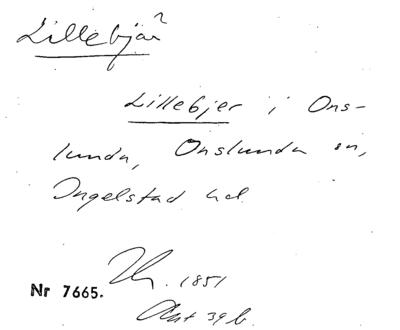 Lillebjär
Lillebjer i Ons-
lunda, Onslunda sn,
Ingelstad hd
1851
Akt 39 b.
Nr 7665.